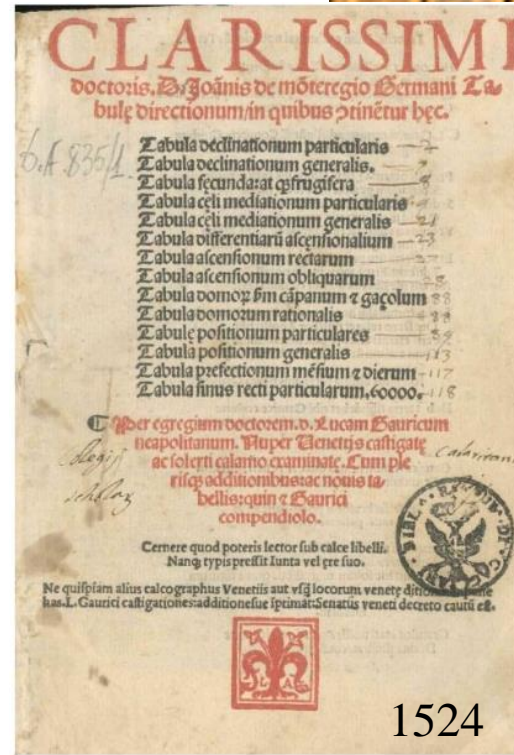 CLARISSIMI
doctoris. D. Joānis de mōteregio Germani Ta
bulę directionum/in quibus ꝯtinētur hęc.
b.A 835/1
Tabula declinationum particularis — 2
Tabula declinationum generalis. — 7
Tabula fęcunda: at qꝫ frugifera — 8
Tabula cęli mediationum particularis 9
Tabula cęli mediationum generalis — 21
Tabula differentiarū ascęnsionalium — 23
Tabula ascensionum rectarum — 27
Tabula ascensionum obliquarum 28
Tabula domoꝝ ẜm cāpanum ⁊ gaçolum 88
Tabula domorum rationalis — 88
Tabulę positionum particulares — 89
Tabula positionum generalis — 113
Tabula prefectionum mēsium ⁊ dierum — 117
Tabula sinus recti particularum. 60000. — 118
Per egregium doctorem. d. Lucam Gauricum
neapolitanum. Nuper Venetijs castigatę
ac solerti calamo examinatę. Cum ple
risqꝫ additionibus: ac nouis ta
bellis: quin ⁊ Gaurici
compendiolo.
Cernere quod poteris lector sub calce libelli.
Nanqꝫ typis pressit Iunta vel ęre suo.
Ne quispiam alius calcographus Venetiis aut vsqꝫ locorum venetę
has. L. Gaurici castigationes: additionesue īprimat: Senatus veneti decreto cautū est.
L A
1524